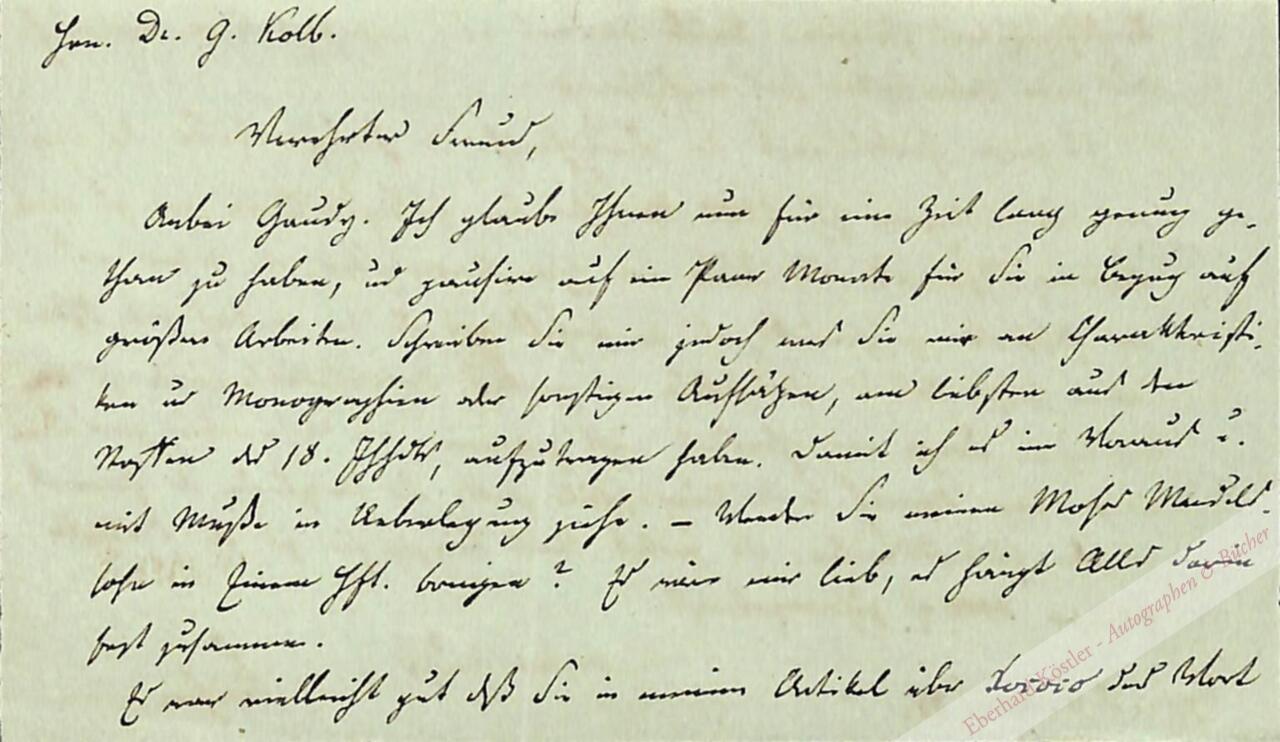 Hrn. Dr. G. Kolb.
Verehrter Freund,
Anbei Gaudy. Ich glaube Ihnen nun für eine Zeit lang genug ge-
than zu haben, und pausire auf ein Paar Monate für Sie in Bezug auf
größere Arbeiten. Schreiben Sie mir jedoch was Sie mir an Charakteristi-
ken und Monographien oder sonstigen Aufsätzen, am liebsten aus den
des 18. Jhhdts, aufzutragen haben. Damit ich es im Voraus u.
mit Muße in Ueberlegung ziehe. – Werden Sie meinen Moses Mendels-
sohn in Einem Hft. bringen? Es wäre mir lieb, es hängt Alles darin
fest zusammen.
Es war vielleicht gut daß Sie in meinem Artikel über das Wort
Eberhard Köstler - Autographen & Bücher